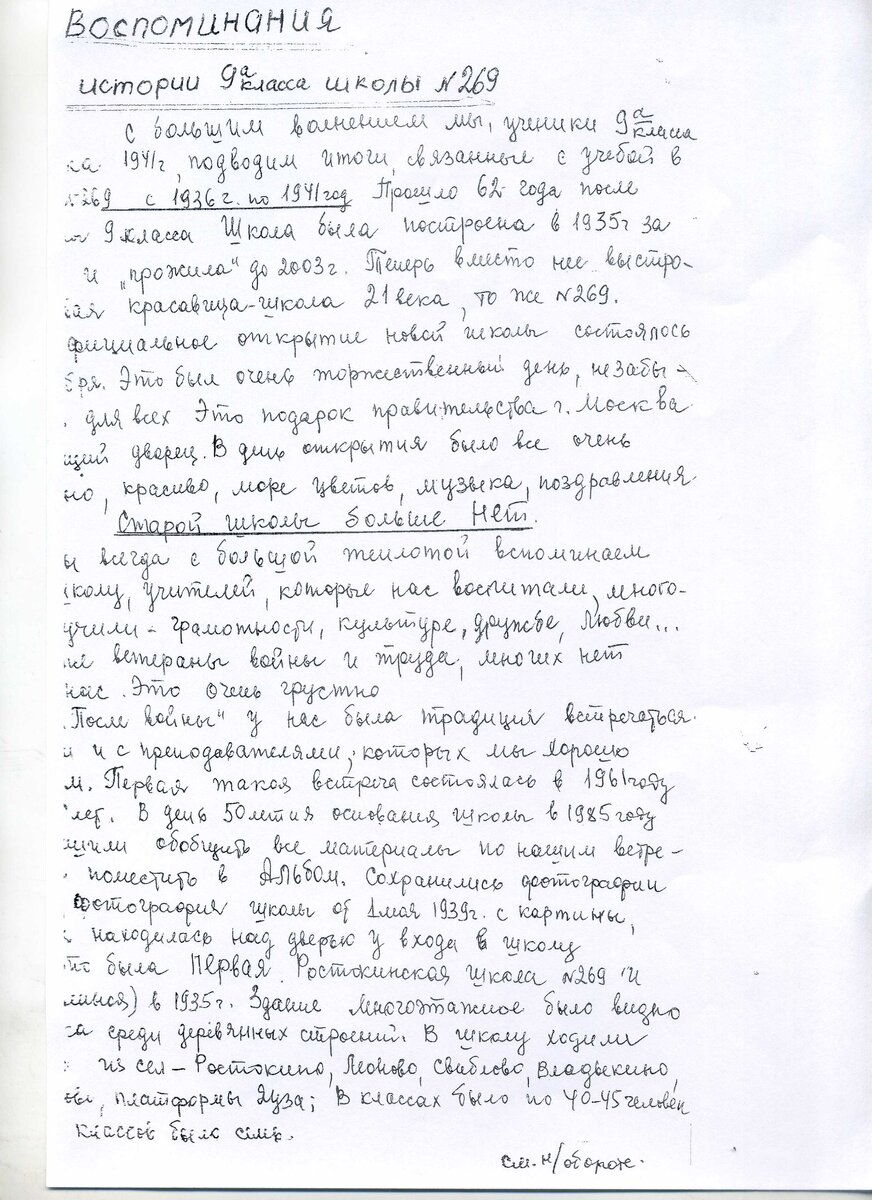 Воспоминания
истории 9а класса школы №269
С большим волнением мы, ученики 9а класса
ка 1941г, подводим итоги, связанные с учебой в
№269 с 1936г. по 1941год Прошло 62 года после
9 класса Школа была построена в 1935г за
и "прожила" до 2003г. Теперь вместо нее выстро-
ная красавица-школа 21 века, то же №269.
фициальное открытие новой школы состоялось
бря. Это был очень торжественный день, незабы-
для всех Это подарок правительства г. Москва
щий дворец. В день открытия было все очень
но, красиво, море цветов, музыка, поздравления.
Старой школы больше нет.
ы всегда с большой теплотой вспоминаем
школу, учителей, которые нас воспитали, много-
учили - грамотности, культуре, дружбе, Любви...
ие ветераны войны и труда, многих нет
нас. Это очень грустно
"После войны" у нас была традиция встречаться.
и и с преподавателями, которых мы хорошо
м. Первая такая встреча состоялась в 1961году
лет. В день 50летия основания школы в 1985году
шили обобщить все материалы по нашим встре-
поместить в Альбом. Сохранились фотографии
фотография школы от 1мая 1939г. с картины,
находилась над дверью у входа в школу
то была Первая Ростокинская школа №269 и
линся) в 1935г. Здание многоэтажное было видно
ка среди деревянных строений. В школу ходили
из сел - Ростокино, Леоново, Свиблово, Владыкино,
платформы Яуза; В классах было по 40-45 человек
классов было семь.
см. н/обороте.